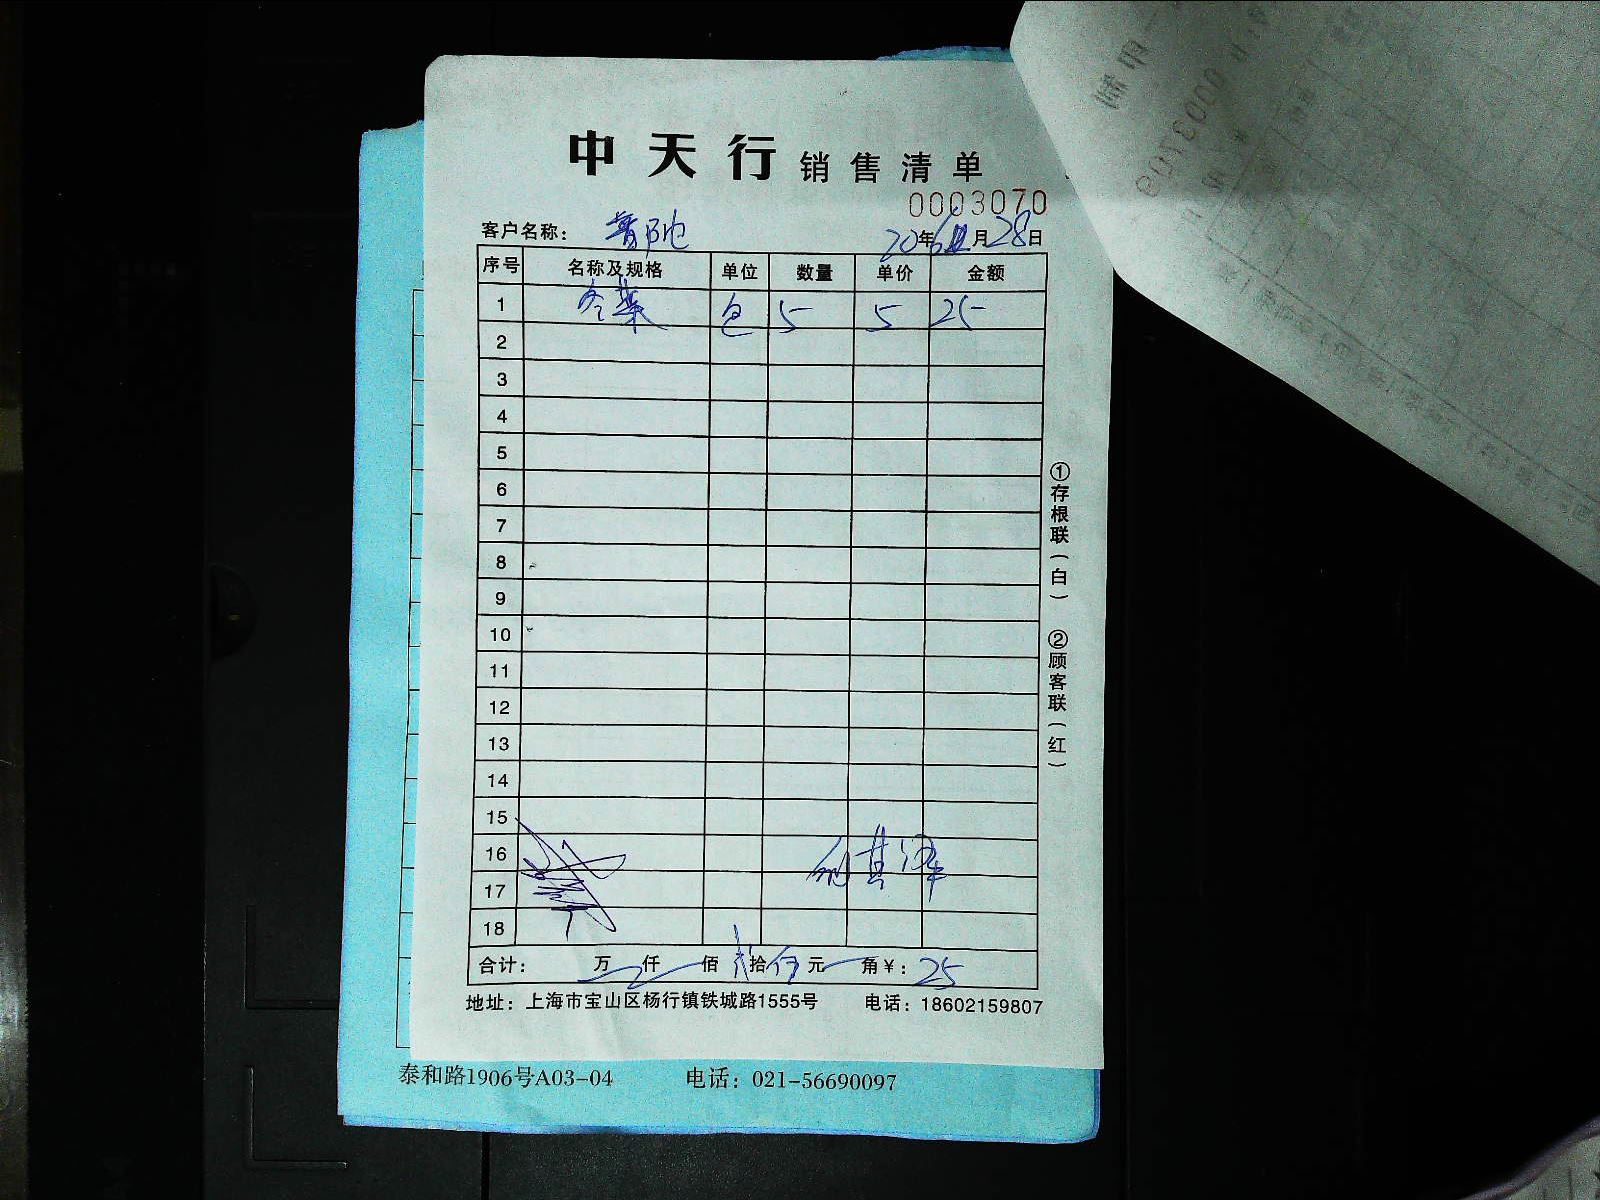 中天行 销售清单
0003070
客户名称：
20年6月28日
序号 名称及规格 单位 数量 单价 金额
1 冬菜 包 5 5 25
2
3
4
5
6
7
8
9
10
11
12
13
14
15
16
17
18
合计： 万 仟 佰 贰拾伍元 角￥：25
地址：上海市宝山区杨行镇铁城路1555号 电话：18602159807
①存根联(白) ②顾客联(红)
泰和路1906号A03-04 电话：021-56690097